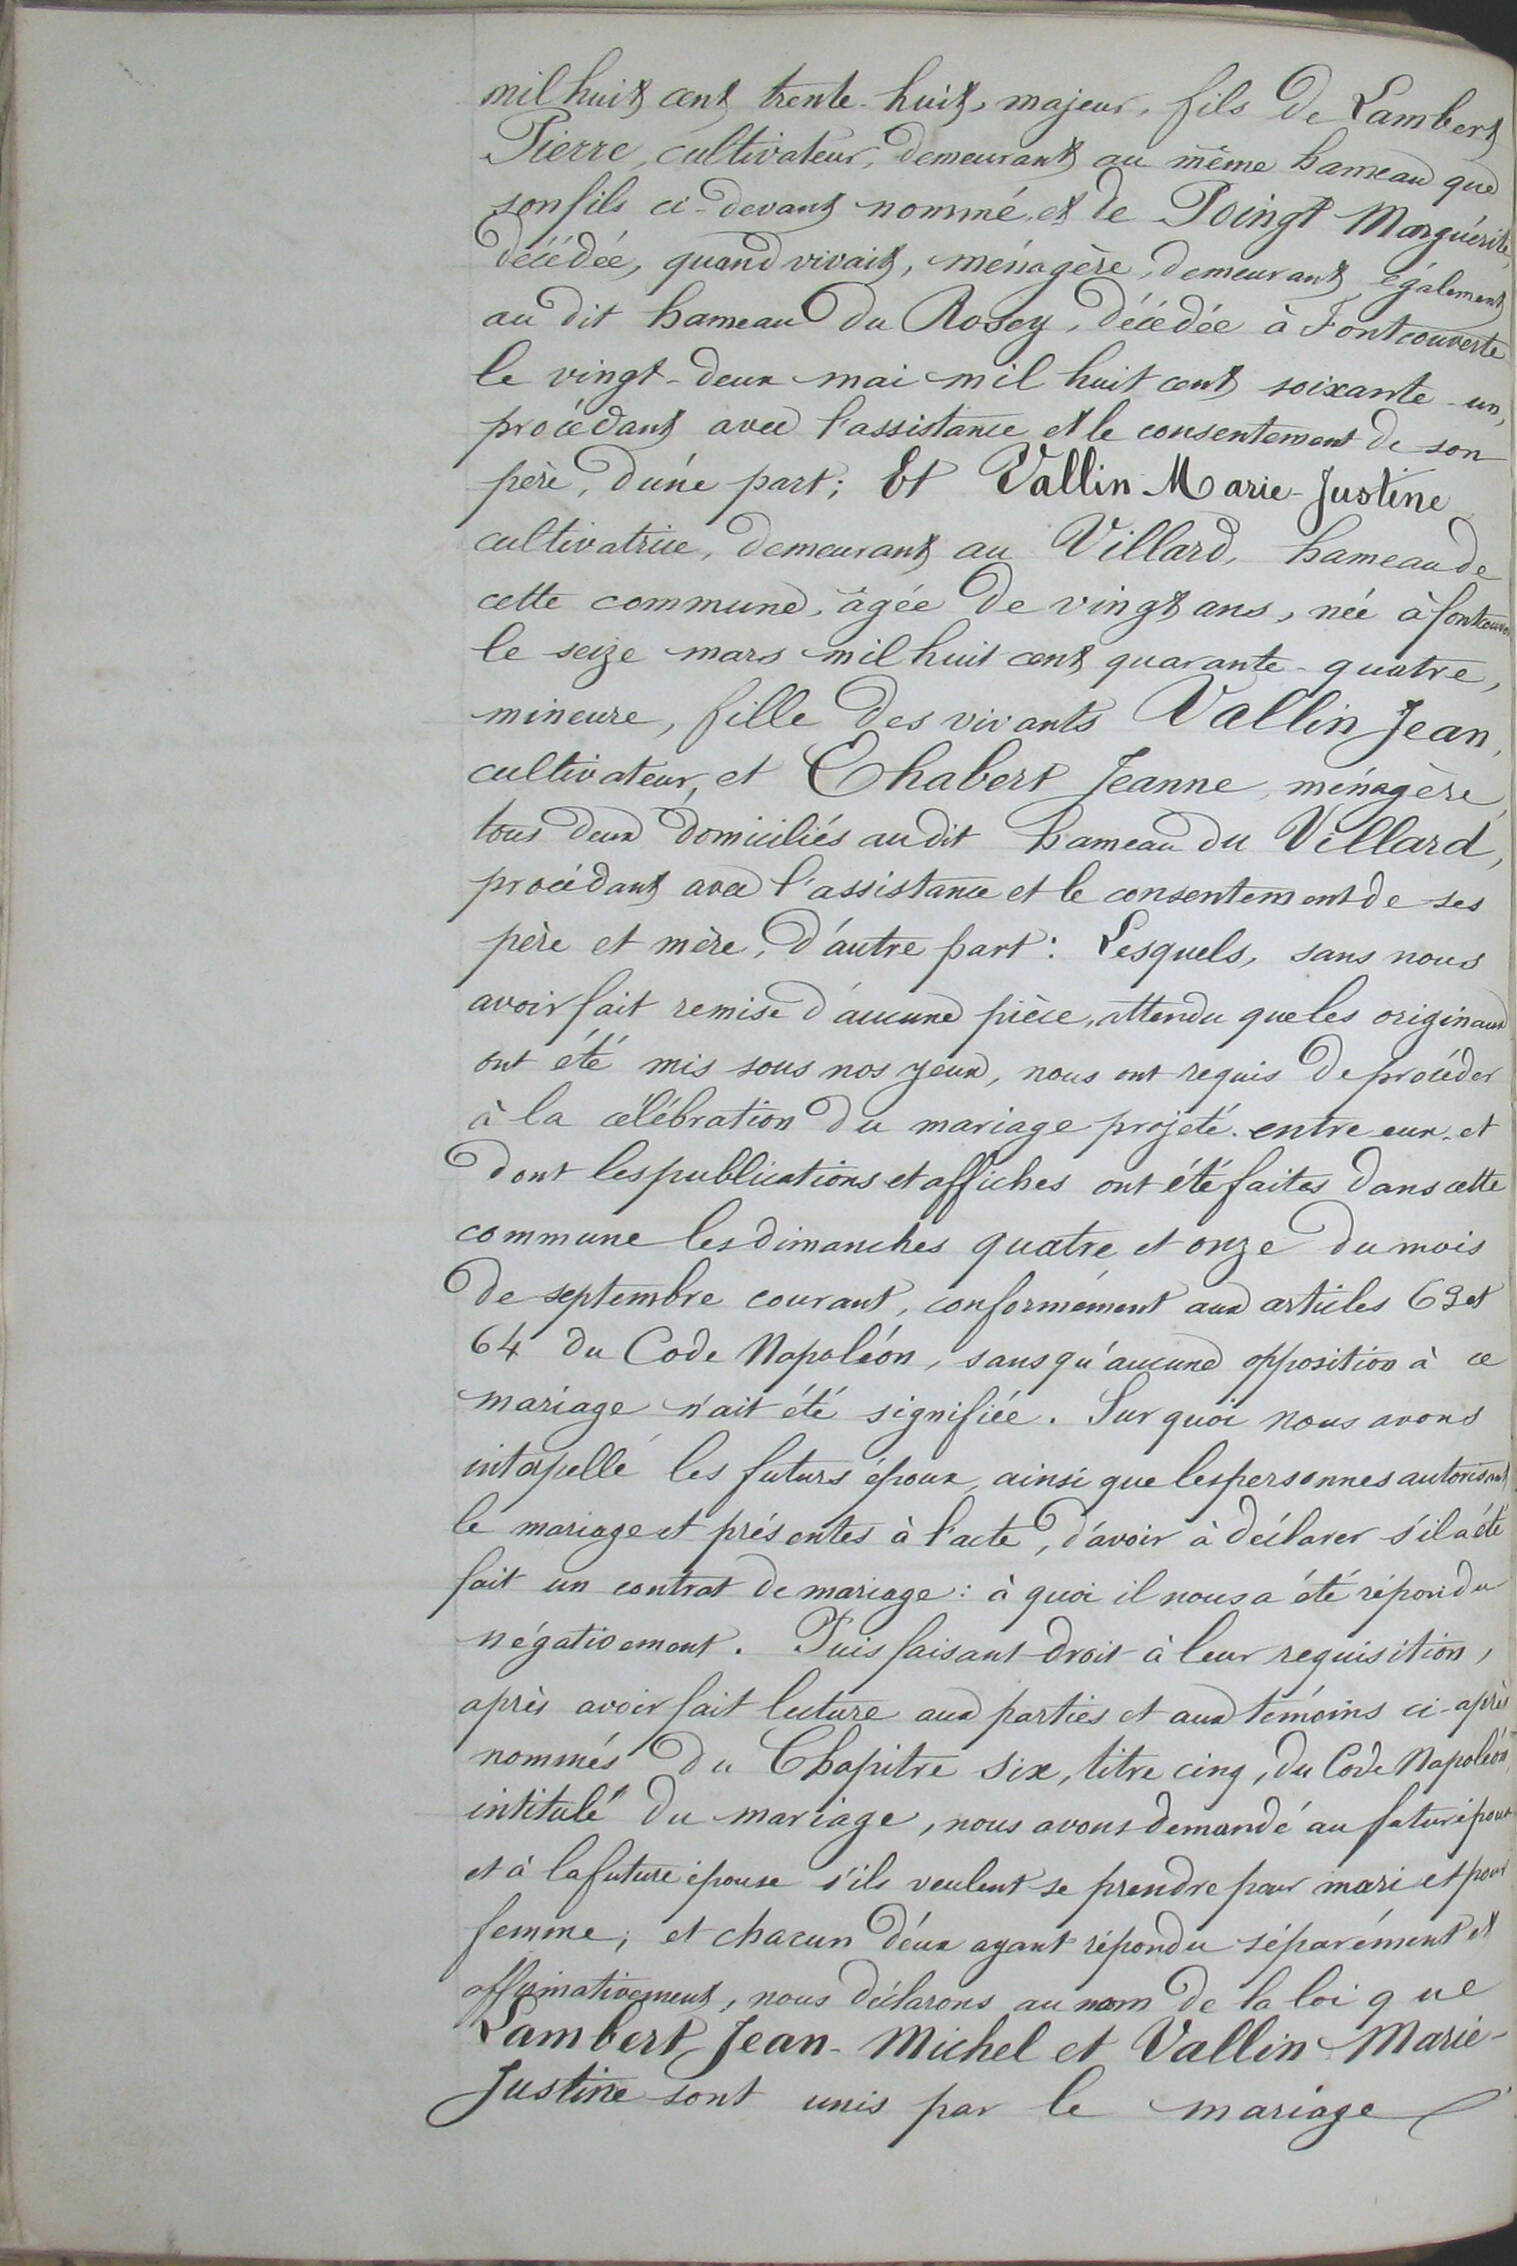 mil huit cent trente-huit, majeur, fils de Lambert
Pierre, cultivateur, demeurant au même hameau que
son fils ci-devant nommé, et de Poingt Marguérite,
décédée, quand vivait, ménagère, demeurant également
au dit hameau du Rosey, décédée à Fontcouverte
le vingt-deux mai mil huit cent soixante-un,
procédant avec l'assistance et le consentement de son
père, d'une part; Et Vallin Marie-Justine
cultivatrice, demeurant au Villard, hameau de
cette commune, âgée de vingt ans, née à fontcouver
le seize mars mil huit cent quarante-quatre,
mineure, fille des vivants Vallin Jean,
cultivateur, et Chabert Jeanne, ménagère,
tous deux domiciliés au dit hameau du Villard,
procédant avec l'assistance et le consentement de ses
père et mère, d'autre part: Lesquels, sans nous
avoir fait remise d'aucune pièce, attendu que les originaux
ont été mis sous nos yeux, nous ont requis de procéder
à la célébration du mariage projeté entre eux et
dont les publications et affiches ont été faites dans cette
commune les dimanches quatre et onze du mois
de septembre courant, conformément aux articles 63 et
64 du Code Napoléon, sans qu'aucune opposition à ce
mariage n'ait été signifiée. Sur quoi nous avons
interpellé les futurs époux, ainsi que les personnes autorisant
le mariage et présentes à l'acte, d'avoir à déclarer s'il a été
fait un contrat de mariage: à quoi il nous a été répondu
négativement. Puis faisant droit à leur requisition,
après avoir fait lecture aux parties et aux témoins ci-après
nommés du Chapitre six, titre cinq, du Code Napoléon,
intitulé du mariage, nous avons demandé au futur époux
et à la future épouse s'ils veulent se prendre pour mari et pour
femme; et chacun d'eux ayant répondu séparément et
affirmativement, nous déclarons au nom de la loi que
Lambert Jean-Michel et Vallin Marie-
Justine sont unis par le mariage